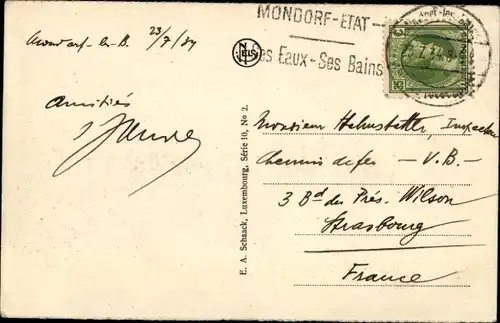 Mondorf-les-B. 23/7/34
Amitiés
MONDORF-ETAT-
Ses Eaux-Ses Bains
NELS
E. A. Schaack, Luxembourg, Série 10, No 2.
Monsieur Helmstetter, Inspecteur
Chemin de fer - V.B. -
3 Bd du Prés. Wilson
Strasbourg
France